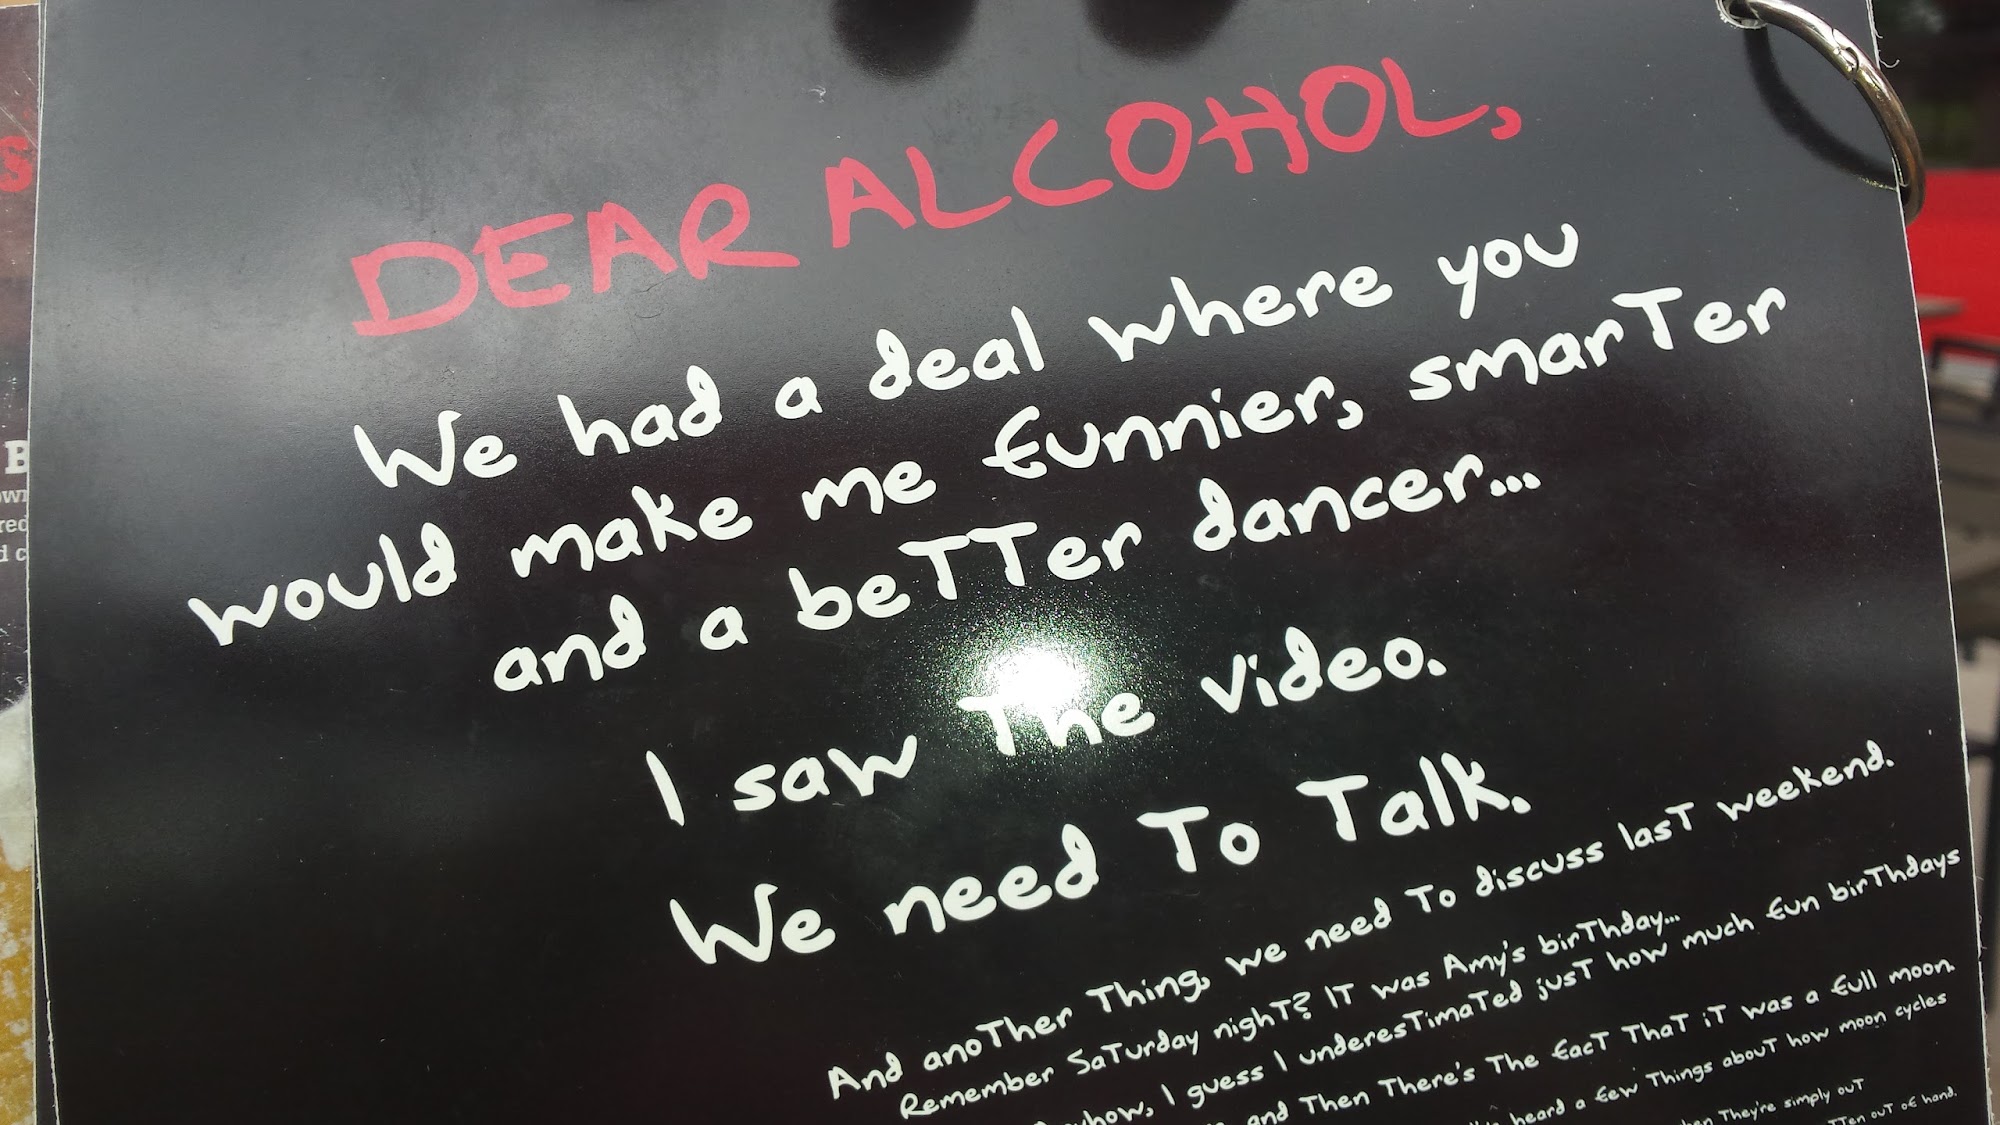 DEAR ALCOHOL,
We had a deal where you
would make me funnier, smarter
and a better dancer...
I saw the video.
We need to talk.
And another thing, we need to discuss last weekend.
Remember Saturday night? It was Amy's birthday...
I guess I underestimated just how much fun birthdays
and then there's the fact that it was a full moon.
heard a few things about how moon cycles
they're simply out
out of hand.